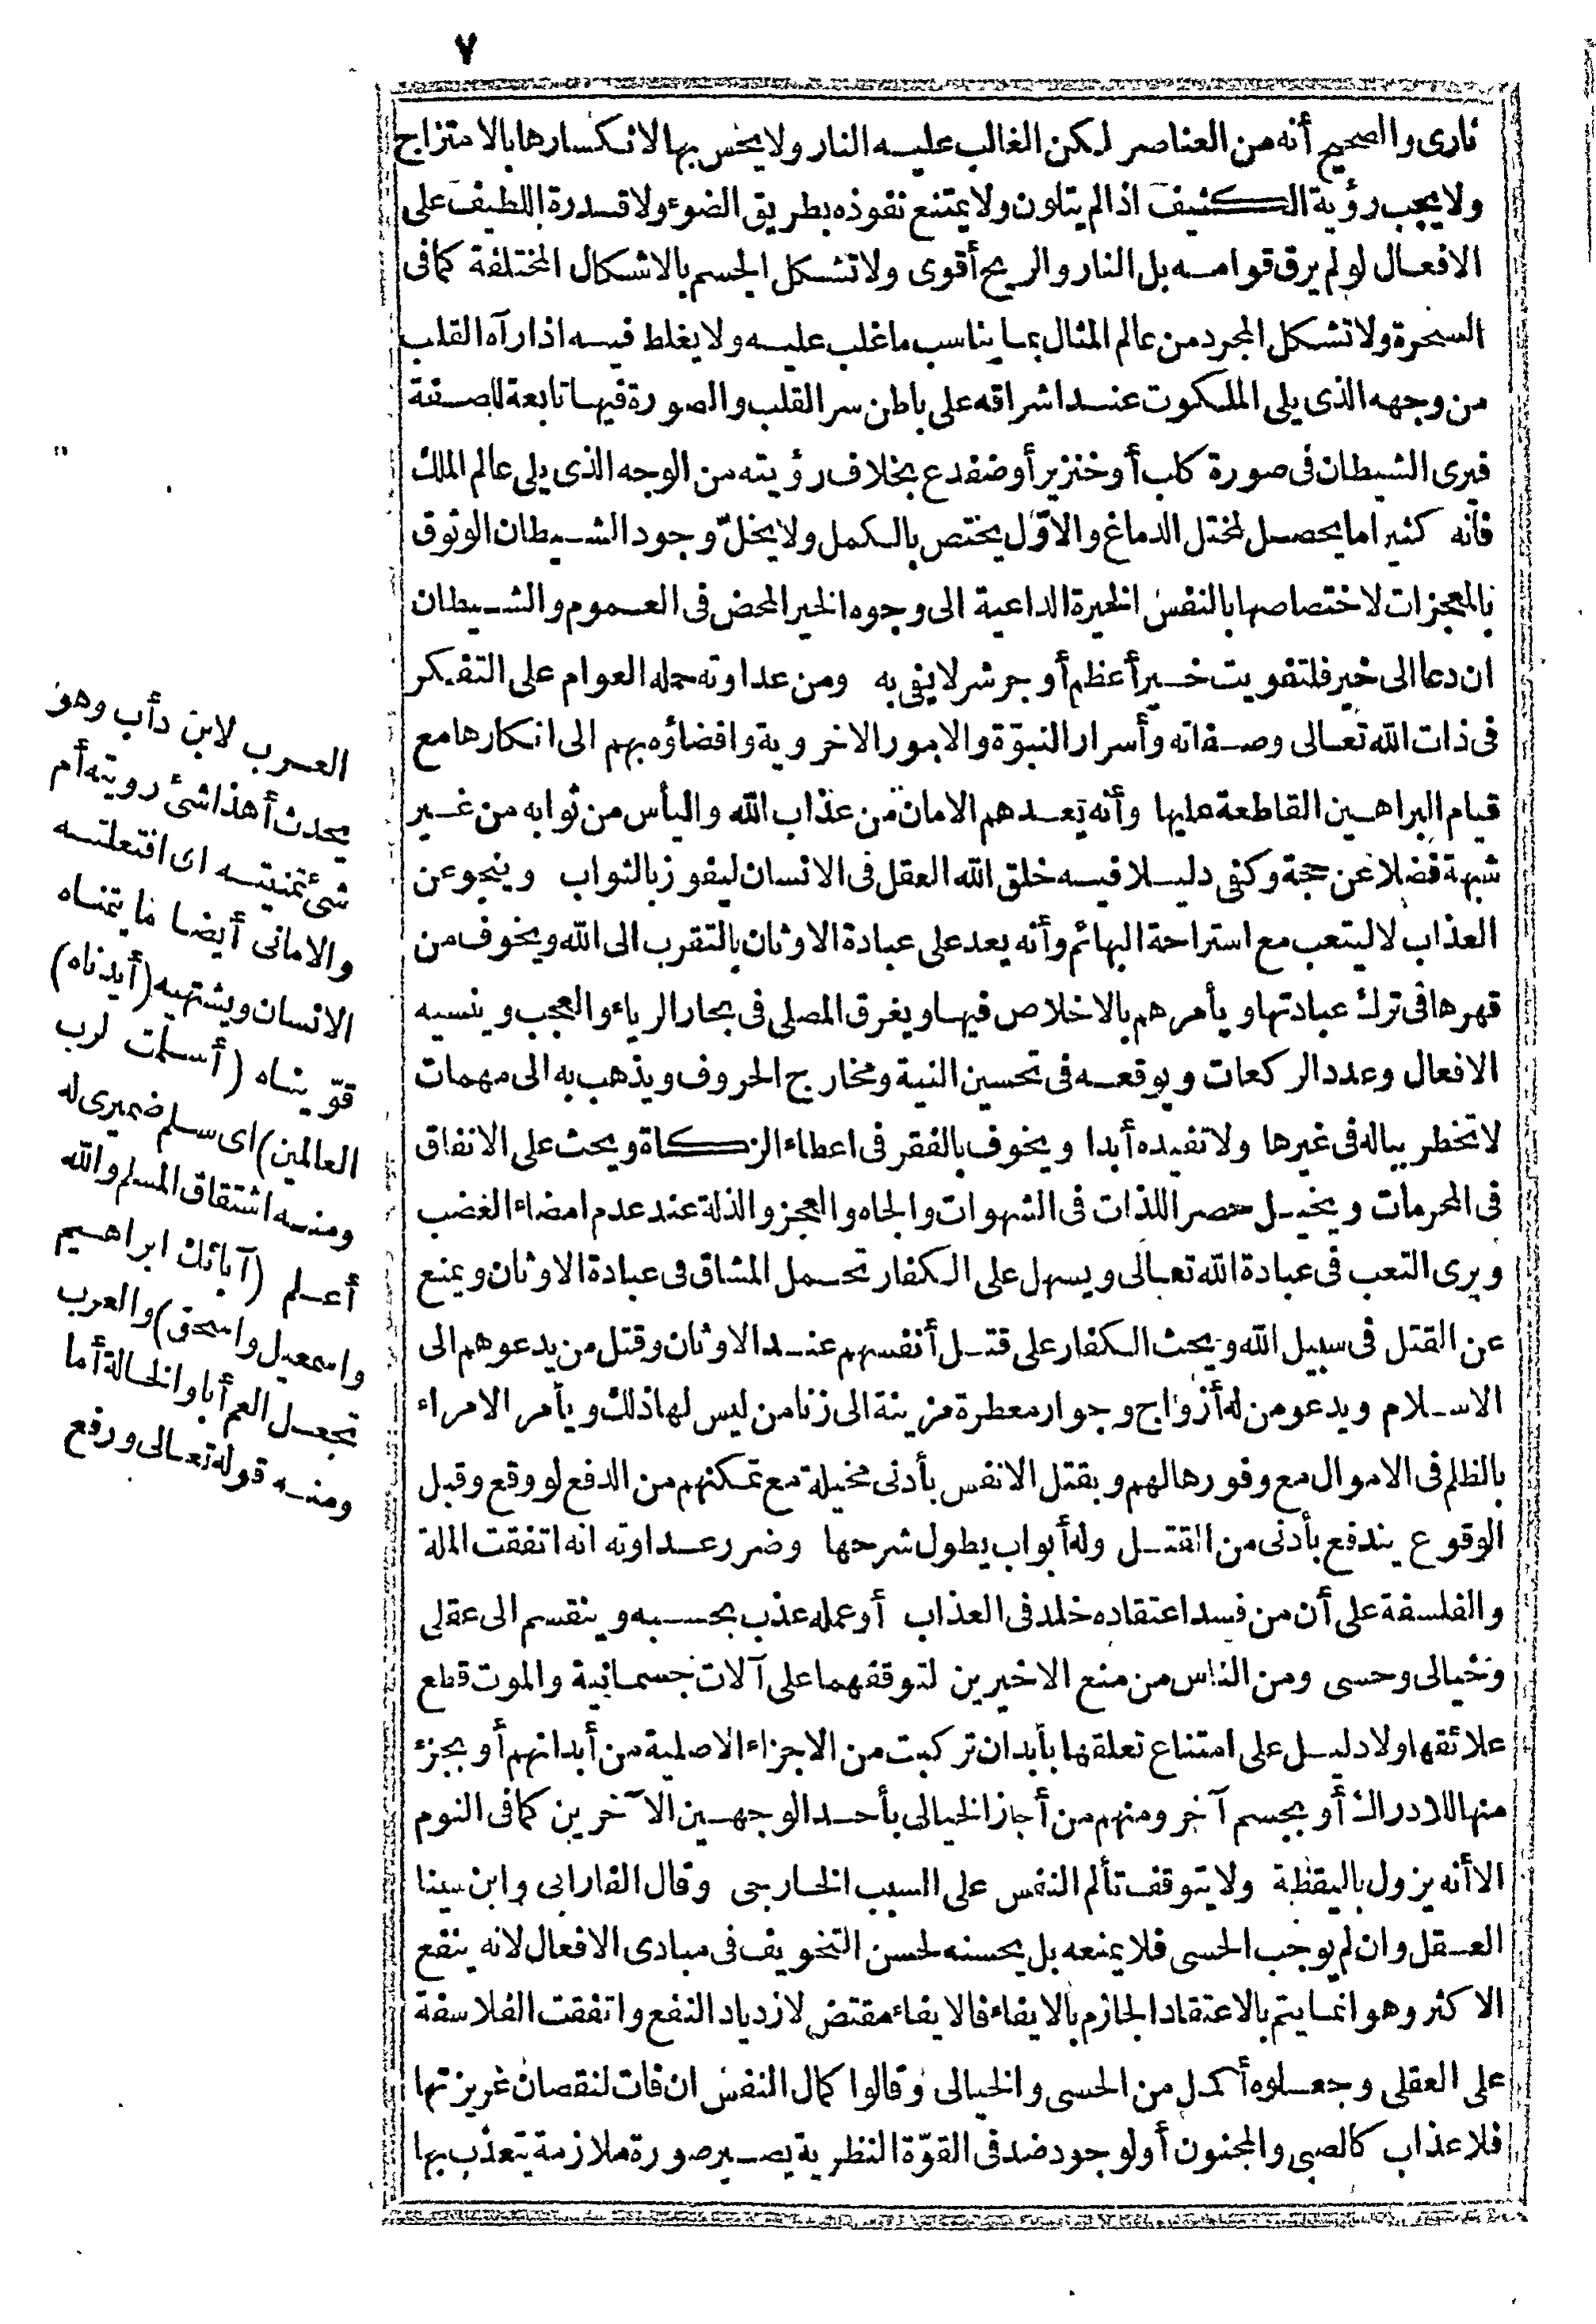 ٧
نارى والصحيح أنه من العناصر لكن الغالب عليه النار ولا يحس بها لانكسارها بالامتزاج
ولا يجب رؤية الكثيف اذا لم يتلون ولا يمتنع نفوذه بطريق الضوء ولا قدرة اللطيف على
الافعال لو لم يرق قوامه بل النار والريح أقوى ولا تشكل الجسم بالاشكال المختلفة كما فى
السحرة ولا تشكل المجرد من عالم المثال بما يناسب ما غلب عليه ولا يغلط فيه اذا رآه القلب
من وجهه الذى يلى الملكوت عند اشراقه على باطن سر القلب والصورة فيها تابعة للصفة
فيرى الشيطان فى صورة كلب أو خنزير أو ضفدع بخلاف رؤيته من الوجه الذى يلى عالم الملك
فانه كثيرا ما يحصل لمختل الدماغ والاوّل يختص بالكمل ولا يخلّ وجود الشيطان الوثوق
بالمعجزات لاختصاصها بالنفس الخيرة الداعية الى وجوه الخير المحض فى العموم والشيطان
ان دعا الى خير فلتفويت خير أعظم أو جر شر لا يفى به ومن عداوته حمله العوام على التفكر
فى ذات الله تعالى وصفاته وأسرار النبوّة والامور الاخروية وافضاؤه بهم الى انكارها مع
قيام البراهين القاطعة عليها وأنه يعدهم الامان من عذاب الله واليأس من ثوابه من غير
شبهة فضلا عن حجة وكفى دليلا فيه خلق الله العقل فى الانسان ليفوز بالثواب وينجو عن
العذاب لا ليتعب مع استراحة البهائم وأنه يعد على عبادة الاوثان بالتقرب الى الله ويخوف من
قهرها فى ترك عبادتها ويأمرهم بالاخلاص فيها ويغرق المصلى فى بحار الرياء والعجب وينسيه
الافعال وعدد الركعات ويوقعه فى تحسين النية ومخارج الحروف ويذهب به الى مهمات
لا تخطر بباله فى غيرها ولا تفيده أبدا ويخوف بالفقر فى اعطاء الزكاة ويحث على الانفاق
فى المحرمات ويخيل حصر اللذات فى الشهوات والجاه والعجز والذلة عند عدم امضاء الغضب
ويرى التعب فى عبادة الله تعالى ويسهل على الكفار تحمل المشاق فى عبادة الاوثان ويمنع
عن القتل فى سبيل الله ويحث الكفار على قتل أنفسهم عند الاوثان وقتل من يدعوهم الى
الاسلام ويدعو من له أزواج وجوار معطرة مزينة الى زنا من ليس لها ذلك ويأمر الامراء
بالظلم فى الاموال مع وفورها لهم وبقتل الانفس بأدنى مخيلة مع تمكنهم من الدفع لو وقع وقبل
الوقوع يندفع بأدنى من القتل وله أبواب يطول شرحها وضرر عداوته انه اتفقت الملة
والفلسفة على أن من فسد اعتقاده خلد فى العذاب أو عمله عذب بحسبه وينقسم الى عقلى
وخيالى وحسى ومن الناس من منع الاخيرين لتوقفهما على آلات جسمانية والموت قطع
علائقها ولا دليل على امتناع تعلقها بأبدان تركبت من الاجزاء الاصلية من أبدانهم أو بجزء
منها للادراك أو بجسم آخر ومنهم من أجاز الخيالى بأحد الوجهين الآخرين كما فى النوم
الا أنه يزول باليقظة ولا يتوقف تألم النفس على السبب الخارجى وقال الفارابى وابن سينا
العقل وان لم يوجب الحسى فلا يمنعه بل يحسنه لحسن التخويف فى مبادى الافعال لانه ينفع
الاكثر وهو انما يتم بالاعتقاد الجازم بالايفاء فالايفاء مقتض لازدياد النفع واتفقت الفلاسفة
على العقلى وجعلوه أكمل من الحسى والخيالى وقالوا كمال النفس ان فات لنقصان غريزتها
فلا عذاب كالصبى والمجنون أو لوجود ضد فى القوّة النظرية يصير صورة ملازمة يتعذب بها
العرب لابن دأب وهو
يحدث أهذا شئ رويته أم
شئ تمنيته اى افتعلته
والامانى أيضا ما يتمناه
الانسان ويشتهيه (أيدناه)
قوّيناه (أسلمت لرب
العالمين) اى سلم ضميرى له
ومنه اشتقاق المسلم والله
أعلم (آبائك ابراهيم
واسمعيل واسحق) والعرب
تجعل العم أبا والخالة أما
ومنه قوله تعالى ورفع